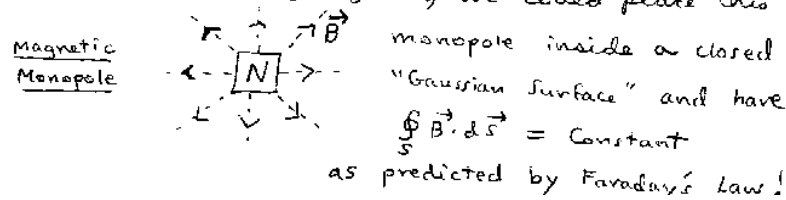 we could place this
Magnetic
Monopole
B⃗
N
monopole inside a closed
"Gaussian Surface" and have
∮_S B⃗ · dS⃗ = Constant
as predicted by Faraday's Law!